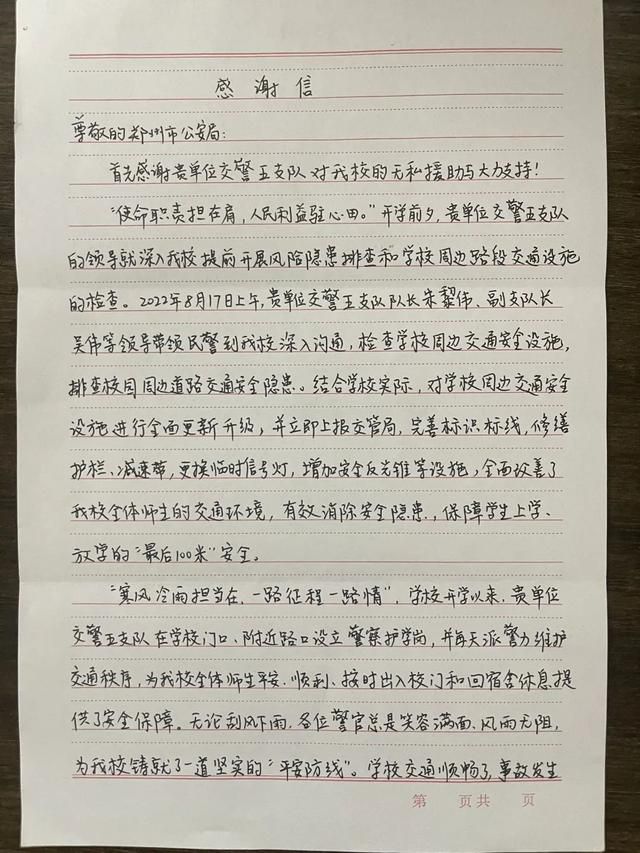 感谢信
尊敬的郑州市公安局：
首先感谢贵单位交警五支队对我校的无私援助与大力支持！
“使命职责担在肩，人民利益驻心田。”开学前夕，贵单位交警五支队
的领导就深入我校提前开展风险隐患排查和学校周边路段交通设施
的检查。2022年8月17日上午，贵单位交警五支队队长朱黎伟、副支队长
吴伟等领导带领民警到我校深入沟通，检查学校周边交通安全设施，
排查校园周边道路交通安全隐患。结合学校实际，对学校周边交通安全
设施进行全面更新升级，并立即上报交管局，完善标识标线，修缮
护栏、减速带，更换临时信号灯，增加安全反光锥等设施，全面改善了
我校全体师生的交通环境，有效消除安全隐患，保障学生上学、
放学的“最后100米”安全。
“寒风冷雨担当在，一路征程一路情”，学校开学以来，贵单位
交警五支队在学校门口、附近路口设立警察护学岗，并每天派警力维护
交通秩序，为我校全体师生平安、顺利、按时出入校门和回宿舍休息提
供了安全保障。无论刮风下雨，各位警官总是笑容满面、风雨无阻，
为我校铸就了一道坚实的“平安防线”。学校交通顺畅了，事故发生
第 页共 页